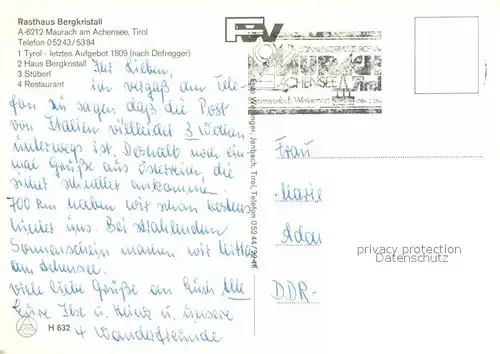 Rasthaus Bergkristall
A-6212 Maurach am Achensee, Tirol
Telefon 05243/5384
1 Tyrol - letztes Aufgebot 1809 (nach Defregger)
2 Haus Bergkristall
3 Stüberl
4 Restaurant
Ihr Lieben,
ich vergaß am Tele-
fon zu sagen daß die Post
von Italien vielleicht 3 Wochen
unterwegs ist. Deshalb noch ein-
mal Grüße aus Österreich, die
sicher schneller ankommen.
700 km haben wir schon bestens
hinter uns. Bei strahlendem
Sonnenschein machen wir Mittag
am Achensee.
Viele liebe Grüße an Euch Alle
Eure Ilse u. Heinz u. unsere
4 Wanderfreunde
H 632
Jenbach, Tirol, Telefon 05244/
SONNENTERRASSE
ACHENSEE
Tirol
Frau
Marie
privacy protection
Datenschutz
DDR-